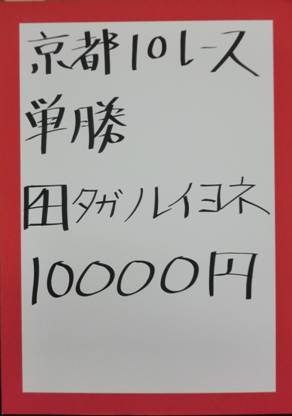 京都10レース
単勝
4タガノルイヨネ
10000円